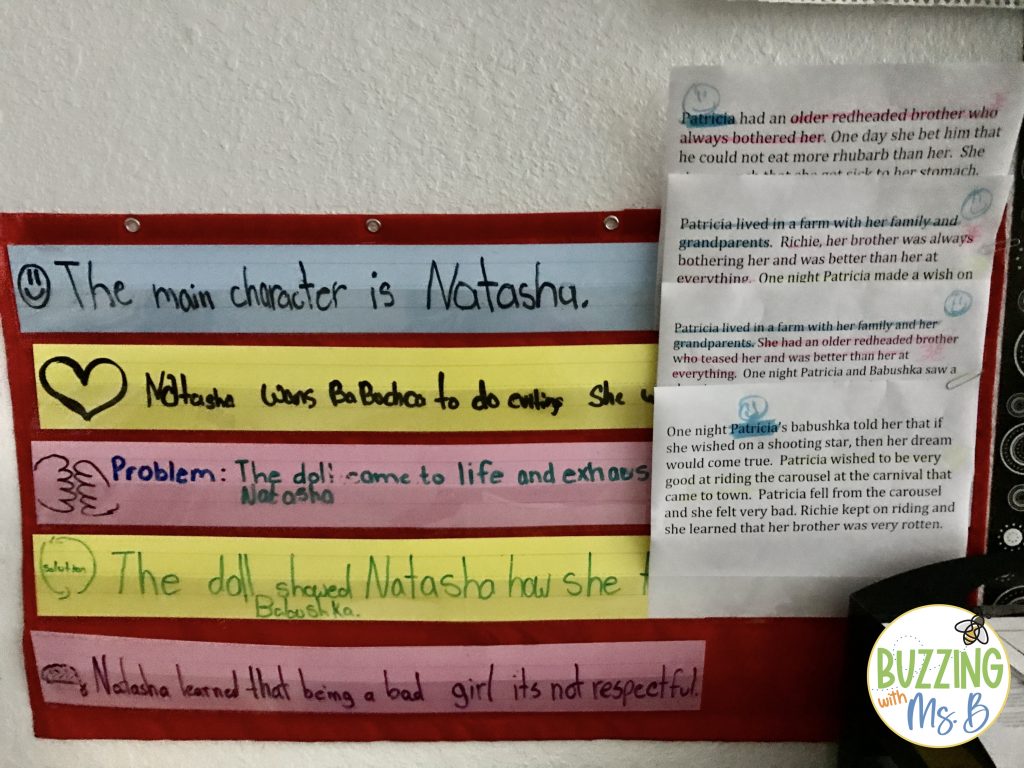 The main character is Natasha.
Natasha wans BaBachca to do evilings She
Problem: The doll came to life and exhaus
Natasha
solution
The doll showed Natasha how she
Babushka.
Natasha learned that being a bad girl its not respectful.
Patricia had an older redheaded brother who
always bothered her. One day she bet him that
he could not eat more rhubarb than her. She
that she got sick to her stomach.
Patricia lived in a farm with her family and
grandparents. Richie, her brother was always
bothering her and was better than her at
everything. One night Patricia made a wish on
Patricia lived in a farm with her family and her
grandparents. She had an older redheaded brother
who teased her and was better than her at
everything. One night Patricia and Babushka saw a
One night Patricia's babushka told her that if
she wished on a shooting star, then her dream
would come true. Patricia wished to be very
good at riding the carousel at the carnival that
came to town. Patricia fell from the carousel
and she felt very bad. Richie kept on riding and
she learned that her brother was very rotten.
BUZZING
with
Ms. B